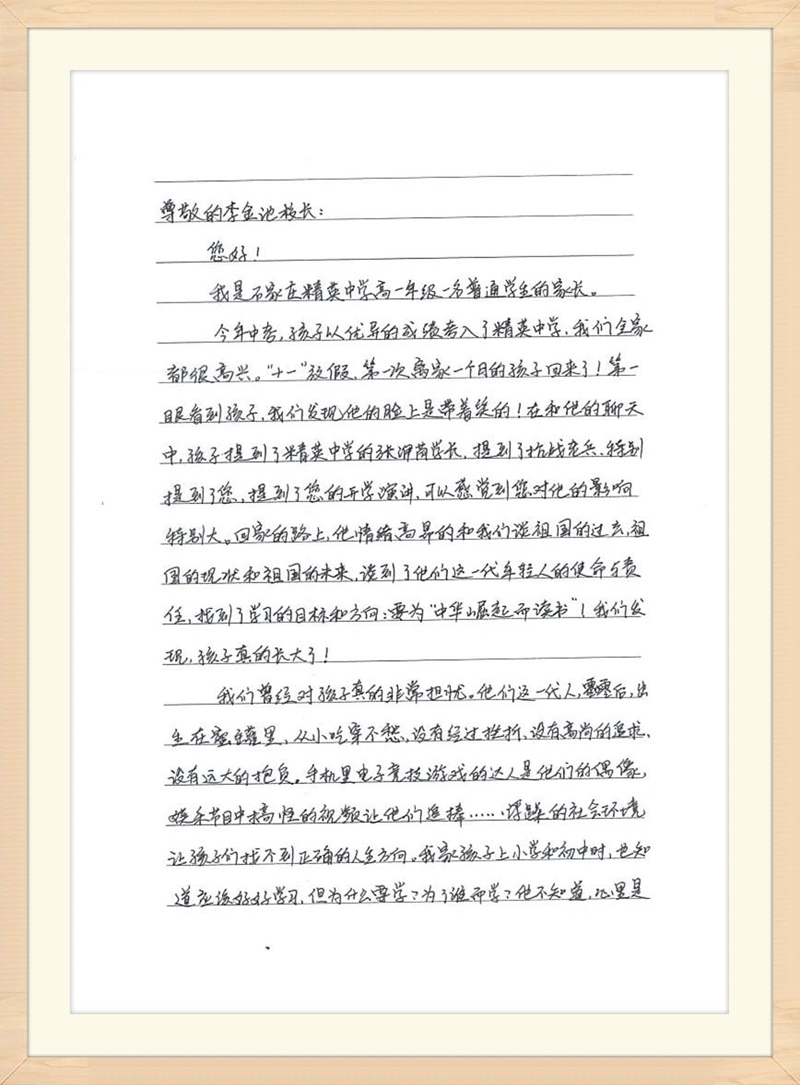 尊敬的李金池校长：
您好！
我是石家庄精英中学高一年级一名普通学生的家长。
今年中考，孩子以优异的成绩考入了精英中学，我们全家
都很高兴。“十一”放假，第一次离家一个月的孩子回来了！第一
眼看到孩子，我们发现他的脸上是带着笑的！在和他的聊天
中，孩子提到了精英中学的张学长，提到了抗战老兵，特别
提到了您，提到了您的开学演讲，可以感觉到您对他的影响
特别大。回家的路上，他情绪高昂的和我们谈祖国的过去，祖
国的现状和祖国的未来，谈到了他们这一代年轻人的使命与责
任，找到了学习的目标和方向：要为“中华崛起而读书”！我们发
现，孩子真的长大了！
我们曾经对孩子真的非常担忧。他们这一代人，零零后，出
生在蜜罐里，从小吃穿不愁，没有经过挫折，没有高尚的追求，
没有远大的抱负。手机里电子竞技游戏的达人是他们的偶像，
娱乐节目中搞怪的视频让他们追捧……浮躁的社会环境
让孩子们找不到正确的人生方向。我家孩子上小学和初中时，也知
道应该好好学习，但为什么要学？为了谁而学？他不知道，心里是